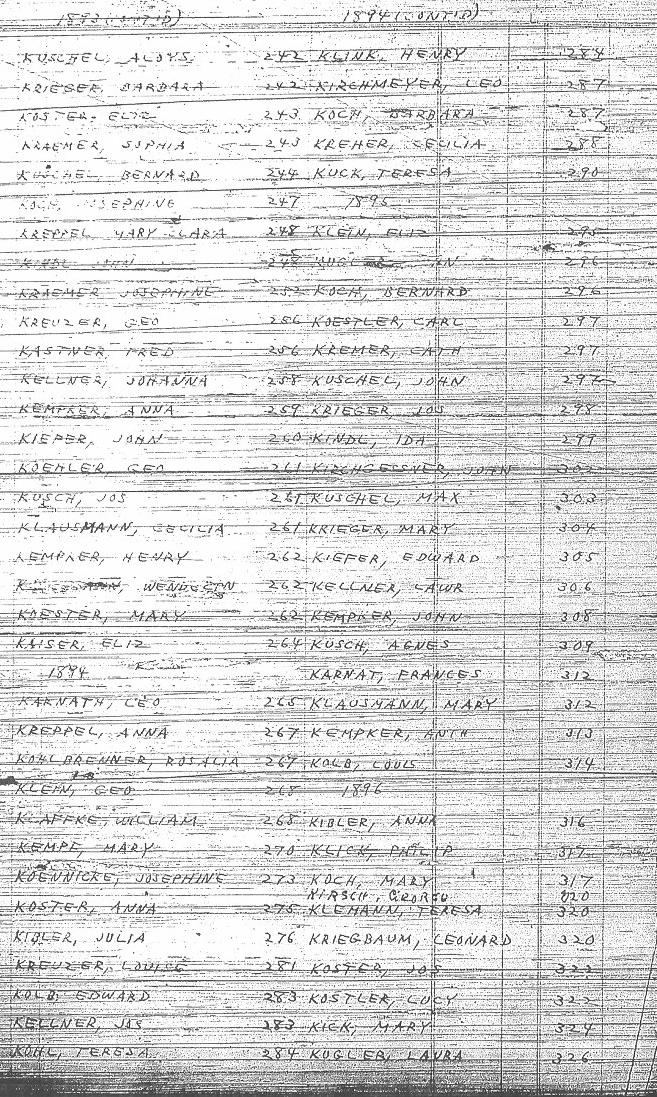 1893 (CONT'D)
KUSCHEL, ALOYS 242
KRIEGER, BARBARA 242
KOSTER, ELIZ 243
KRAEMER, SOPHIA 243
KUSCHEL, BERNARD 244
KOCH, JOSEPHINE 247
KREPPEL, MARY CLARA 248
KINDL, JOHN 248
KRAEMER JOSEPHINE 252
KREUZER, GEO 256
KASTNER, FRED 256
KELLNER, JOHANNA 258
KEMPKER, ANNA 259
KIEFER, JOHN 260
KOEHLER, GEO 261
KUSCH, JOS 261
KLAUSMANN, CECILIA 261
KEMPKER, HENRY 262
WENDELIN 262
KOESTER, MARY 262
KAISER, ELIZ 264
1894
KARNATH, LEO 265
KREPPEL, ANNA 267
KOHLBRENNER, ROSALIA 267
KLEIN, GEO 268
KLAFFKE, WILLIAM 268
KEMPF, MARY 270
KOENNICKE, JOSEPHINE 273
KOSTER, ANNA 275
KIBLER, JULIA 276
KREUZER, LOUISE 281
KOLB, EDWARD 283
KELLNER, JOS 283
KOHL, TERESA 284
1894 (CONT'D)
KLINK, HENRY 284
KIRCHMEYER, LEO 287
KOCH, BARBARA 287
KREHER, CECILIA 288
KUCK, TERESA 290
1895
KLEIN, ELIZ 295
KUGLER, 296
KOCH, BERNARD 296
KOESTLER, CARL 297
KREMER, CATH 297
KUSCHEL, JOHN 297
KRIEGER, JOS 298
KINDL, IDA 299
KIRCHGESSNER, JOHN 302
KUSCHEL, MAX 303
KRIEGER, MARY 304
KIEFER, EDWARD 305
KELLNER, LAWR 306
KEMPKER, JOHN 308
KUSCH, AGNES 309
KARNAT, FRANCES 312
KLAUSMANN, MARY 312
KEMPKER, ANTH 313
KOLB, LOUIS 314
1896
KIBLER, ANNA 316
KLICK, PHILIP 317
KOCH, MARY 317
KIRSCH, GEORGE 320
KLEHANN, TERESA 320
KRIEGBAUM, LEONARD 320
KOSTER, JOS 322
KOSTLER, LUCY 322
KICK, MARY 324
KUGLER, LAURA 326